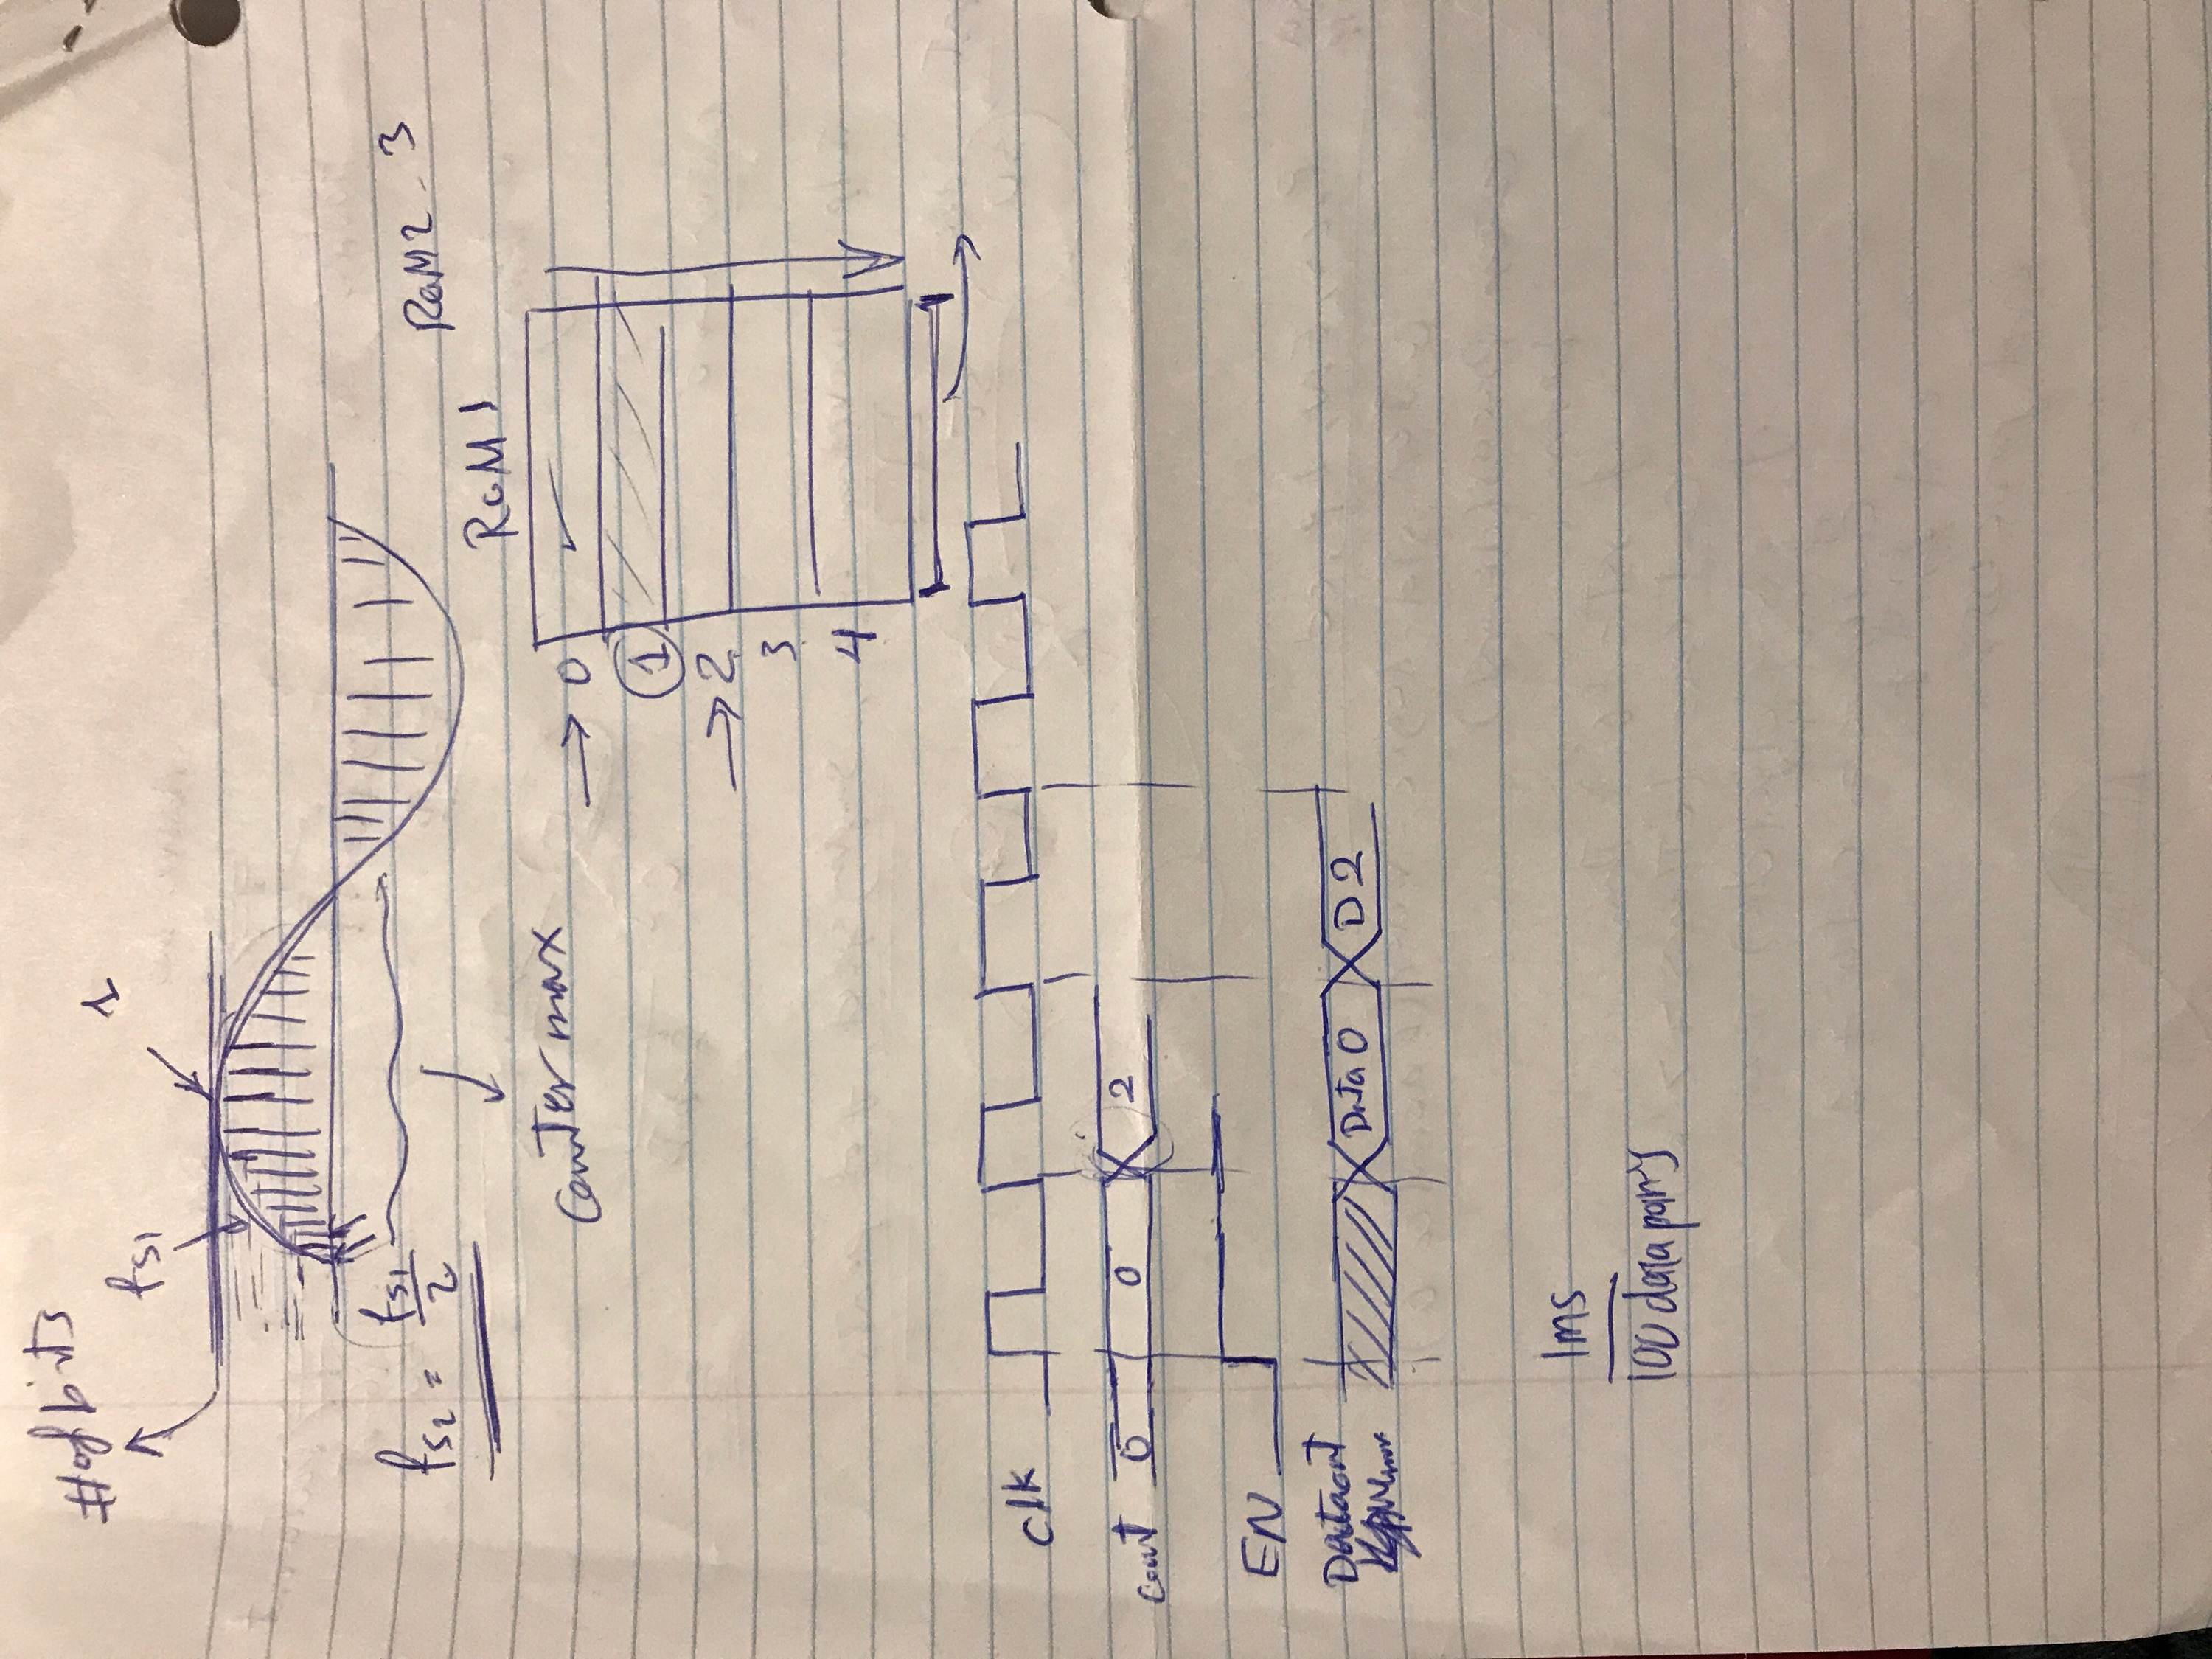 # of bits
fs1
1
fs2 = fs1/2
counter max
ROM2 - 3
ROM1
0
1
2
3
4
clk
count 0 0 2
EN
Dataout Data 0 D2
1ms
100 data